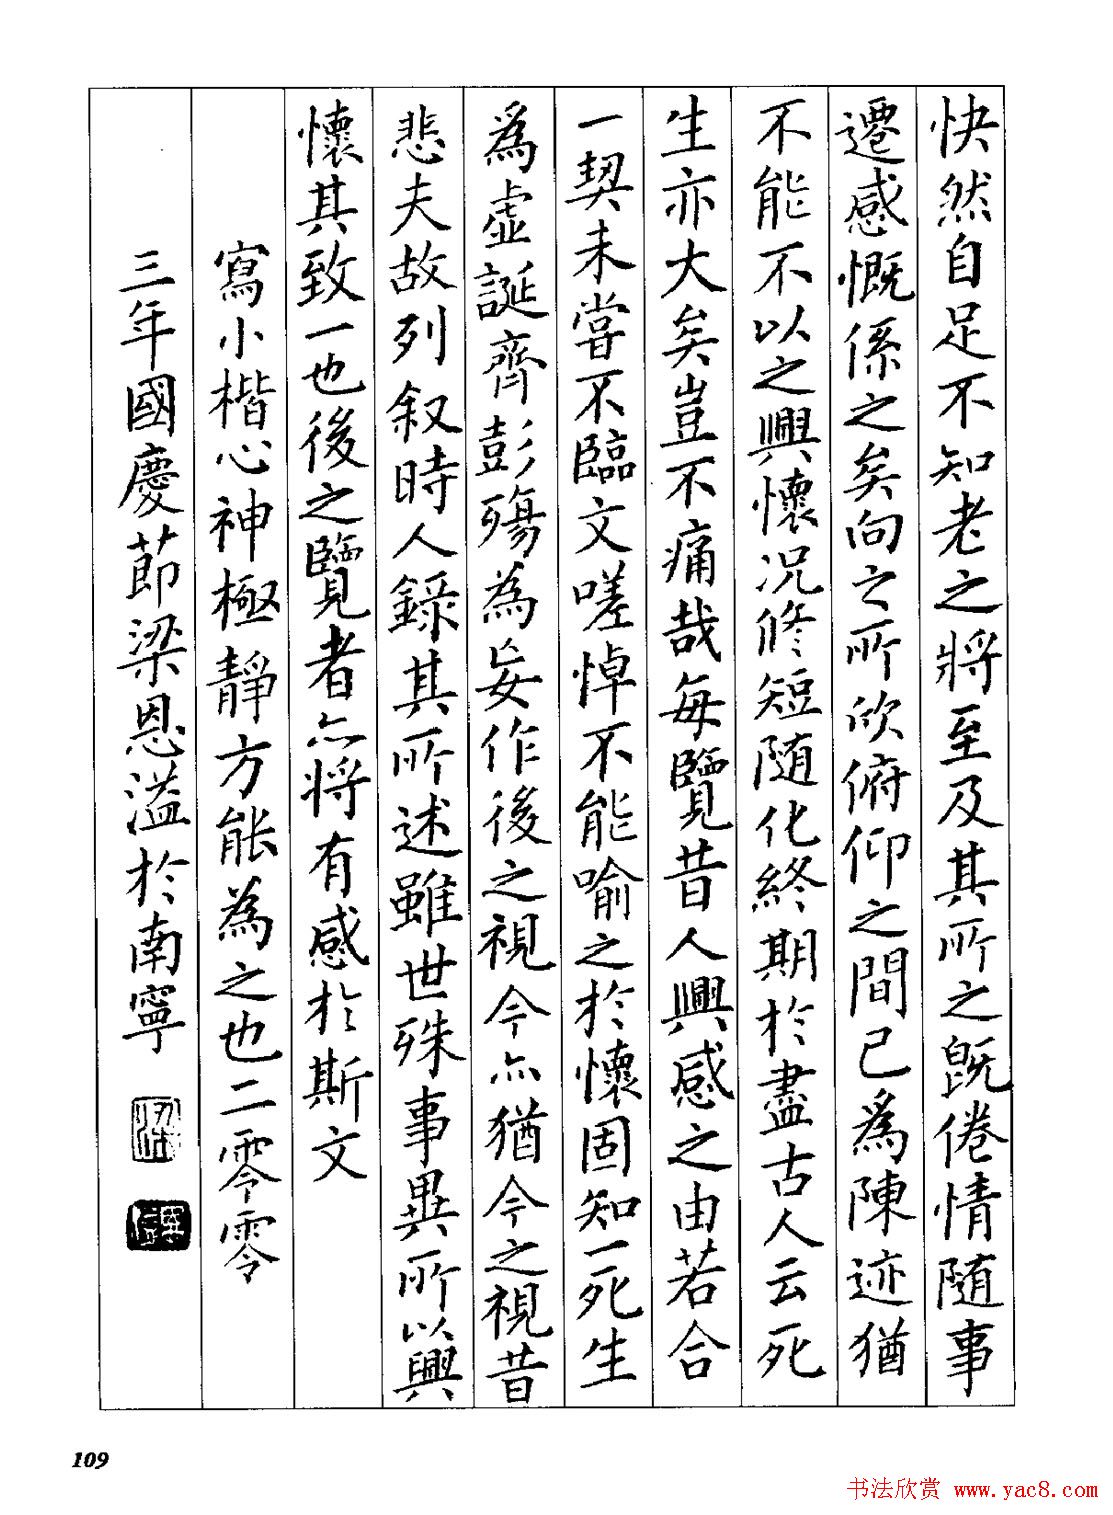 快然自足不知老之將至及其所之既倦情隨事
遷感慨係之矣向之所欣俯仰之間已為陳迹猶
不能不以之興懷況修短隨化終期於盡古人云死
生亦大矣豈不痛哉每覽昔人興感之由若合
一契未嘗不臨文嗟悼不能喻之於懷固知一死生
為虛誕齊彭殤為妄作後之視今亦猶今之視昔
悲夫故列叙時人錄其所述雖世殊事異所以興
懷其致一也後之覽者亦將有感於斯文
寫小楷心神極靜方能為之也二零零
三年國慶節梁恩溢於南寧
109
书法欣赏 www.yac8.com